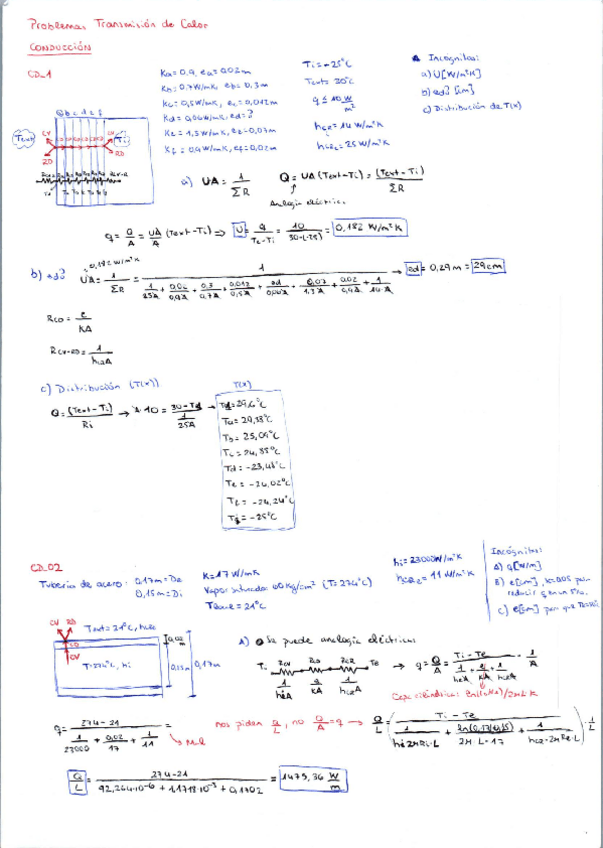 Problemas Transmisión de Calor
CONDUCCIÓN
CD_1
Ka = 0,9, ea = 0,02m
Kb = 0,7W/mK, eb = 0,3m
Kc = 0,5W/mK, ec = 0,012m
Kd = 0,06W/mK, ed = ?
Ke = 1,3W/mK, ee = 0,07m
Kf = 0,9W/mK, ef = 0,02m
Ti = -25°C
Text = 30°C
q ≤ 10 W/m²
hcRi = 14 W/m²K
hcRe = 25 W/m²K
Incógnitas:
a) U [W/m²K]
b) ed? [m]
c) Distribución de T(x)
Text
Ti
a) UA = 1/ΣR
Q = UA (Text - Ti) = (Text - Ti)/ΣR
Analogía eléctrica
q = Q/A = UA/A (Text - Ti) ⇒ U = q/(Te - Ti) = 10/(30 - (-25)) = 0,182 W/m²K
b) ed?
UA = 1/ΣR = 1/(1/25A + 0,02/0,9A + 0,3/0,7A + 0,012/0,5A + ed/0,06A + 0,07/1,3A + 0,02/0,9A + 1/14A) → ed = 0,29m = 29cm
RCD = e/KA
RCV-RD = 1/hcRA
c) Distribución (T(x))
Q = (Text - Ti)/Ri → A·10 = (30 - T1)/(1/25A) →
T(x)
= 29,6°C
Ta = 29,38°C
Tb = 25,09°C
Tc = 24,85°C
Td = -23,48°C
Te = -24,02°C
Tf = -24,24°C
= -25°C
CD_02
Tubería de acero: 0,17m = De
0,15m = Di
K = 17 W/mK
Vapor saturado 60 Kg/cm² (T = 274°C)
= 21°C
hi = 23000 W/m²K
hcRe = 11 W/m²K
Incógnitas:
A) q [W/m]
B) e [cm], K = 0,05 para
reducir q en un
C) e [cm] para que
CV RD
Text = 21°C,
CD
CV
T = 274°C, hi
0,02
0,15m
0,17m
A) Se puede analogía eléctrica
Ti RCV RCD RCR Te → q = Q/A = (Ti - Te)/(1/hiA + e/KA + 1/hcRA) · 1/A
1/hiA e/KA 1/hcRA
Capa cilíndrica: ln(De/Di)/2πL·K
q = (274 - 21)/(1/23000 + 0,02/17 + 1/11) =
nos piden Q/L, no Q/A = q → Q/L = (Ti - Te)/(1/hi·2πRi·L + ln(0,17/0,15)/2π·L·17 + 1/hcR·2πRe·L) · 1/L
Q/L = (274 - 21)/(92,264·10⁻⁶ + 1,1718·10⁻³ + 0,1702) = 1475,36 W/m